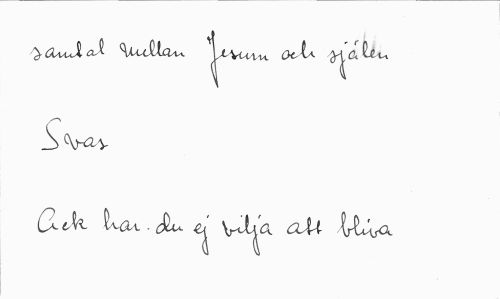 samtal mellan Jesum och själen
Svar
Ack har du ej vilja att bliva